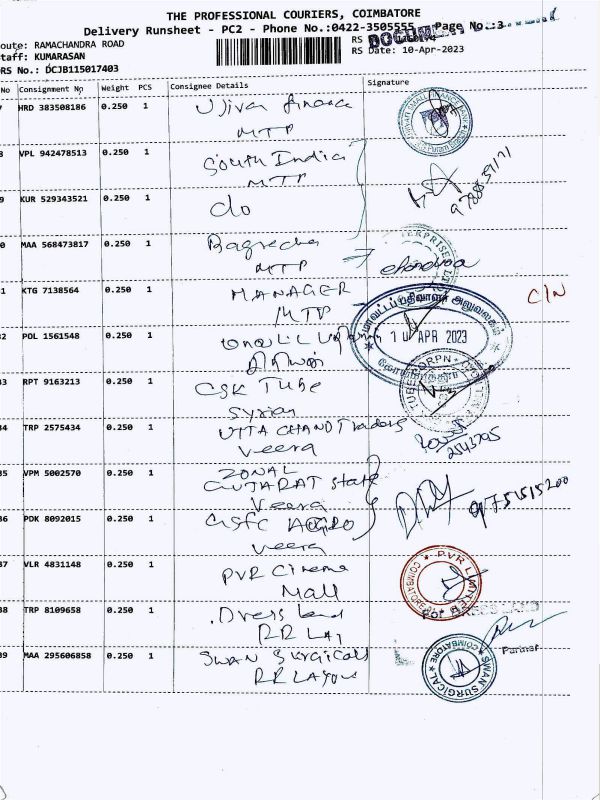 THE PROFESSIONAL COURIERS, COIMBATORE
Delivery Runsheet - PC2 - Phone No.:0422-3505555 Page No.:3
oute: RAMACHANDRA ROAD
taff: KUMARASAN
RS Date: 10-Apr-2023
RS No.: DCJB115017403
No Consignment No Weight PCS Consignee Details Signature
7 HRD 383508186 0.250 1 Ujivan finance
MTP
8 VPL 942478513 0.250 1 South India
MTP
9 KUR 529343521 0.250 1 do
0 MAA 568473817 0.250 1
MTP
1 KTG 7138564 0.250 1 MANAGER C/N
MTP
மாவட்டப்பதிவாளர் அலுவலகம்
APR 2023
32 PDL 1561548 0.250 1 மாவட்ட
33 RPT 9163213 0.250 1 CSK Tube
Syrian
34 TRP 2575434 0.250 1 UTTA CHAND Traders
Veera
2543795
35 VPM 5002570 0.250 1 ZONAL
GUJARAT State
Veera
9751515200
36 PDK 8092015 0.250 1 GSFC AGRO
Veera
37 VLR 4831148 0.250 1 PVR Cinema
Mall
PVR LIMITED
COIMBATORE
38 TRP 8109658 0.250 1 Dress Land
RR Lay
Partner
39 MAA 295606858 0.250 1 Swan Surgicals
RR Layout
SWAN SURGICAL
COIMBATORE